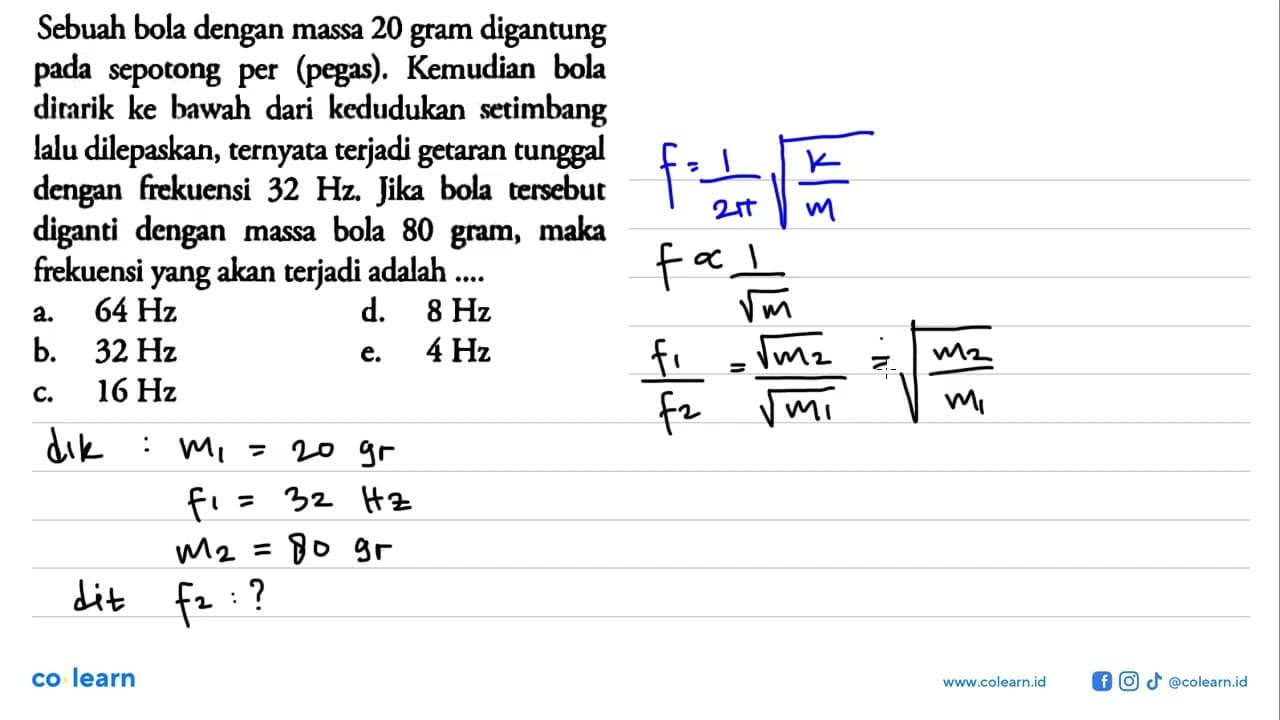 Sebuah bola dengan massa 20 gram digantung
pada sepotong per (pegas). Kemudian bola
ditarik ke bawah dari kedudukan setimbang
lalu dilepaskan, ternyata terjadi getaran tunggal
dengan frekuensi 32 Hz. Jika bola tersebut
diganti dengan massa bola 80 gram, maka
frekuensi yang akan terjadi adalah ....
a. 64 Hz d. 8 Hz
b. 32 Hz e. 4 Hz
c. 16 Hz
dik : m1 = 20 gr
f1 = 32 Hz
m2 = 80 gr
dit f2 : ?
f = 1/2π √(k/m)
f ∝ 1/√m
f1/f2 = √m2/√m1 = √(m2/m1)
co learn
www.colearn.id
@colearn.id